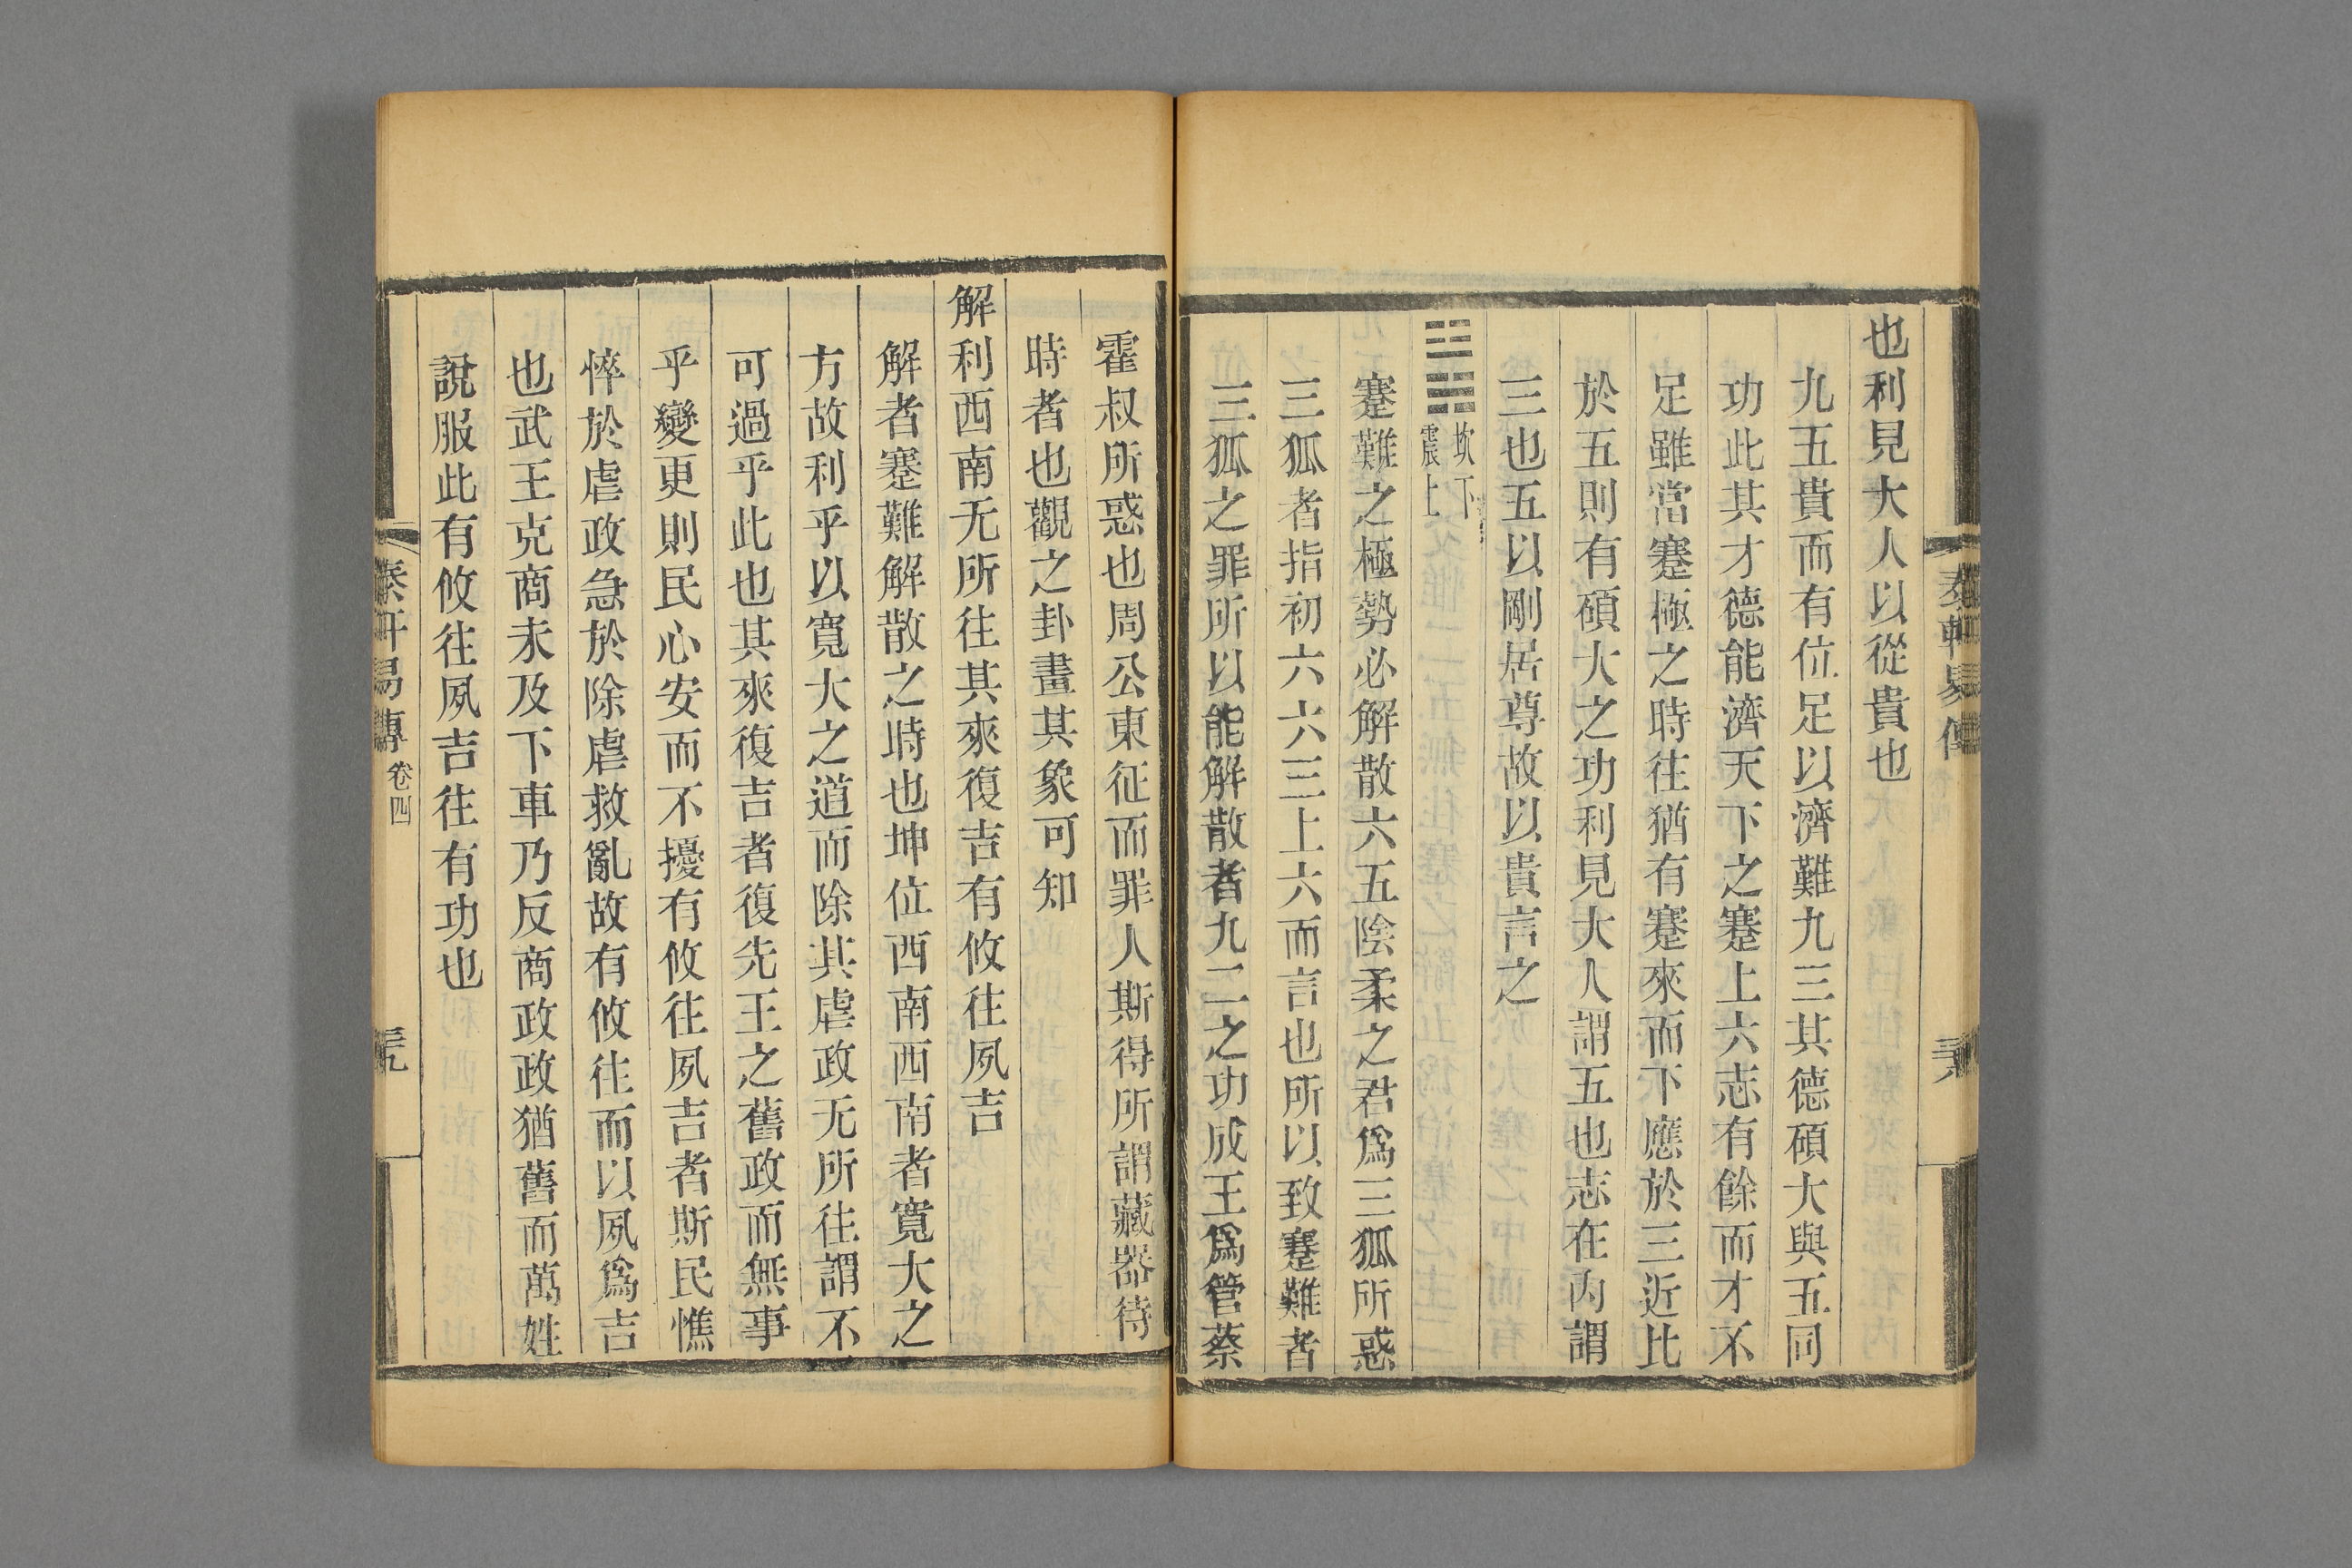 泰軒易傳
也利見大人以從貴也
九五貴而有位足以濟難九三其德碩大與五同
功此其才德能濟天下之蹇上六志有餘而才不
足雖當蹇極之時往猶有蹇來而下應於三近比
於五則有碩大之功利見大人謂五也志在內謂
三也五以剛居尊故以貴言之
坎下
震上
蹇難之極勢必解散六五陰柔之君爲三狐所惑
三狐者指初六六三上六而言也所以致蹇難者
三狐之罪所以能解散者九二之功成王爲管蔡
霍叔所惑也周公東征而罪人斯得所謂藏器待
時者也觀之卦畫其象可知
解利西南无所往其來復吉有攸往夙吉
解者蹇難解散之時也坤位西南西南者寬大之
方故利乎以寬大之道而除其虐政无所往謂不
可過乎此也其來復吉者復先王之舊政而無事
乎變更則民心安而不擾有攸往夙吉者斯民憔
悴於虐政急於除虐救亂故有攸往而以夙爲吉
也武王克商未及下車乃反商政政猶舊而萬姓
說服此有攸往夙吉往有功也
泰軒易傳 卷四